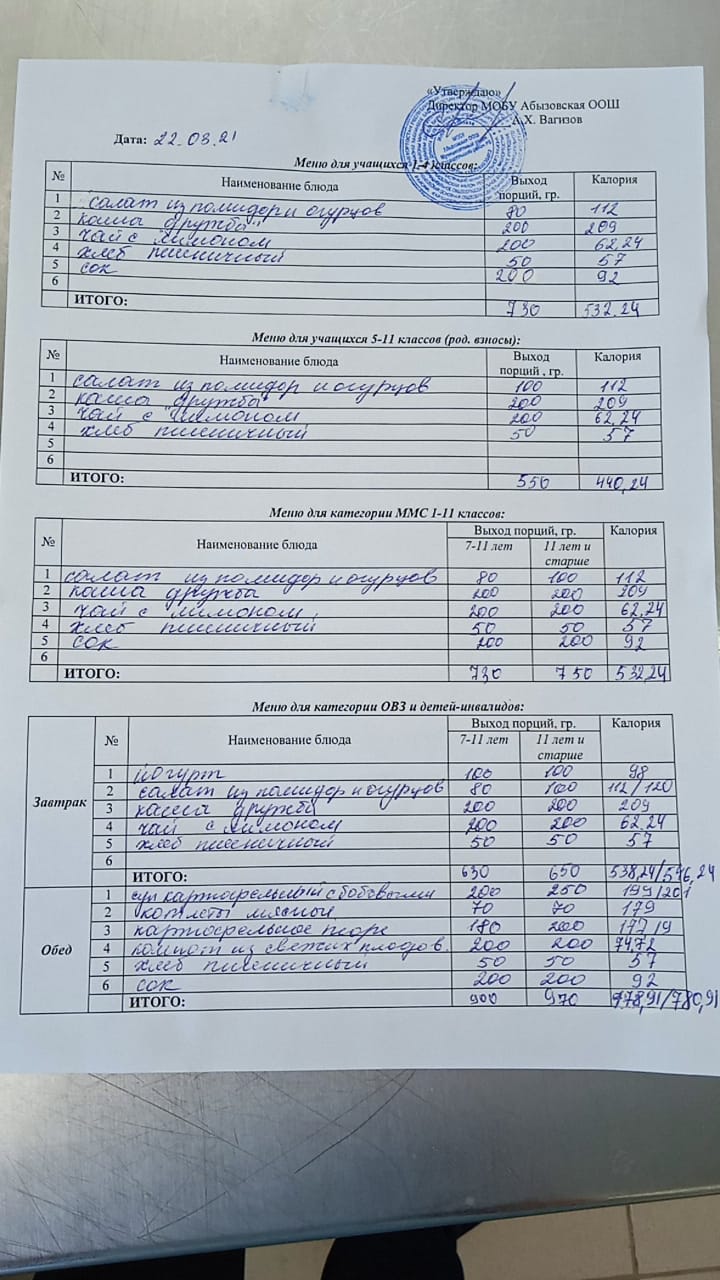 «Утверждаю»
Директор МОБУ Абызовская ООШ
А.Х. Вагизов
Дата: 22.03.21
Меню для учащихся 1-4 классов:
№ Наименование блюда Выход порций, гр. Калория
1 салат из помидор и огурцов 80 112
2 каша дружба 200 209
3 чай с лимоном 200 62,24
4 хлеб пшеничный 50 57
5 сок 200 92
6
ИТОГО: 730 532,24
Меню для учащихся 5-11 классов (род. взносы):
№ Наименование блюда Выход порций , гр. Калория
1 салат из помидор и огурцов 100 112
2 каша дружба 200 209
3 чай с лимоном 200 62,24
4 хлеб пшеничный 50 57
5
6
ИТОГО: 550 440,24
Меню для категории ММС 1-11 классов:
№ Наименование блюда Выход порций, гр. Калория
7-11 лет 11 лет и старше
1 салат из помидор и огурцов 80 100 112
2 каша дружба 200 200 209
3 чай с лимоном 200 200 62,24
4 хлеб пшеничный 50 50 57
5 сок 200 200 92
6
ИТОГО: 730 750 532,24
Меню для категории ОВЗ и детей-инвалидов:
№ Наименование блюда Выход порций, гр. Калория
7-11 лет 11 лет и старше
Завтрак
1 йогурт 100 100 98
2 салат из помидор и огурцов 80 100 112/120
3 каша дружба 200 200 209
4 чай с лимоном 200 200 62.24
5 хлеб пшеничный 50 50 57
6
ИТОГО: 630 650 538,24/546,24
Обед
1 суп картофельный с бобовыми 200 250 199/201
2 котлеты мясной 70 70 179
3 картофельное пюре 180 200
4 компот из свежих плодов 200 200 74,72
5 хлеб пшеничный 50 50 57
6 сок 200 200 92
ИТОГО: 900 970 778,91/780,91